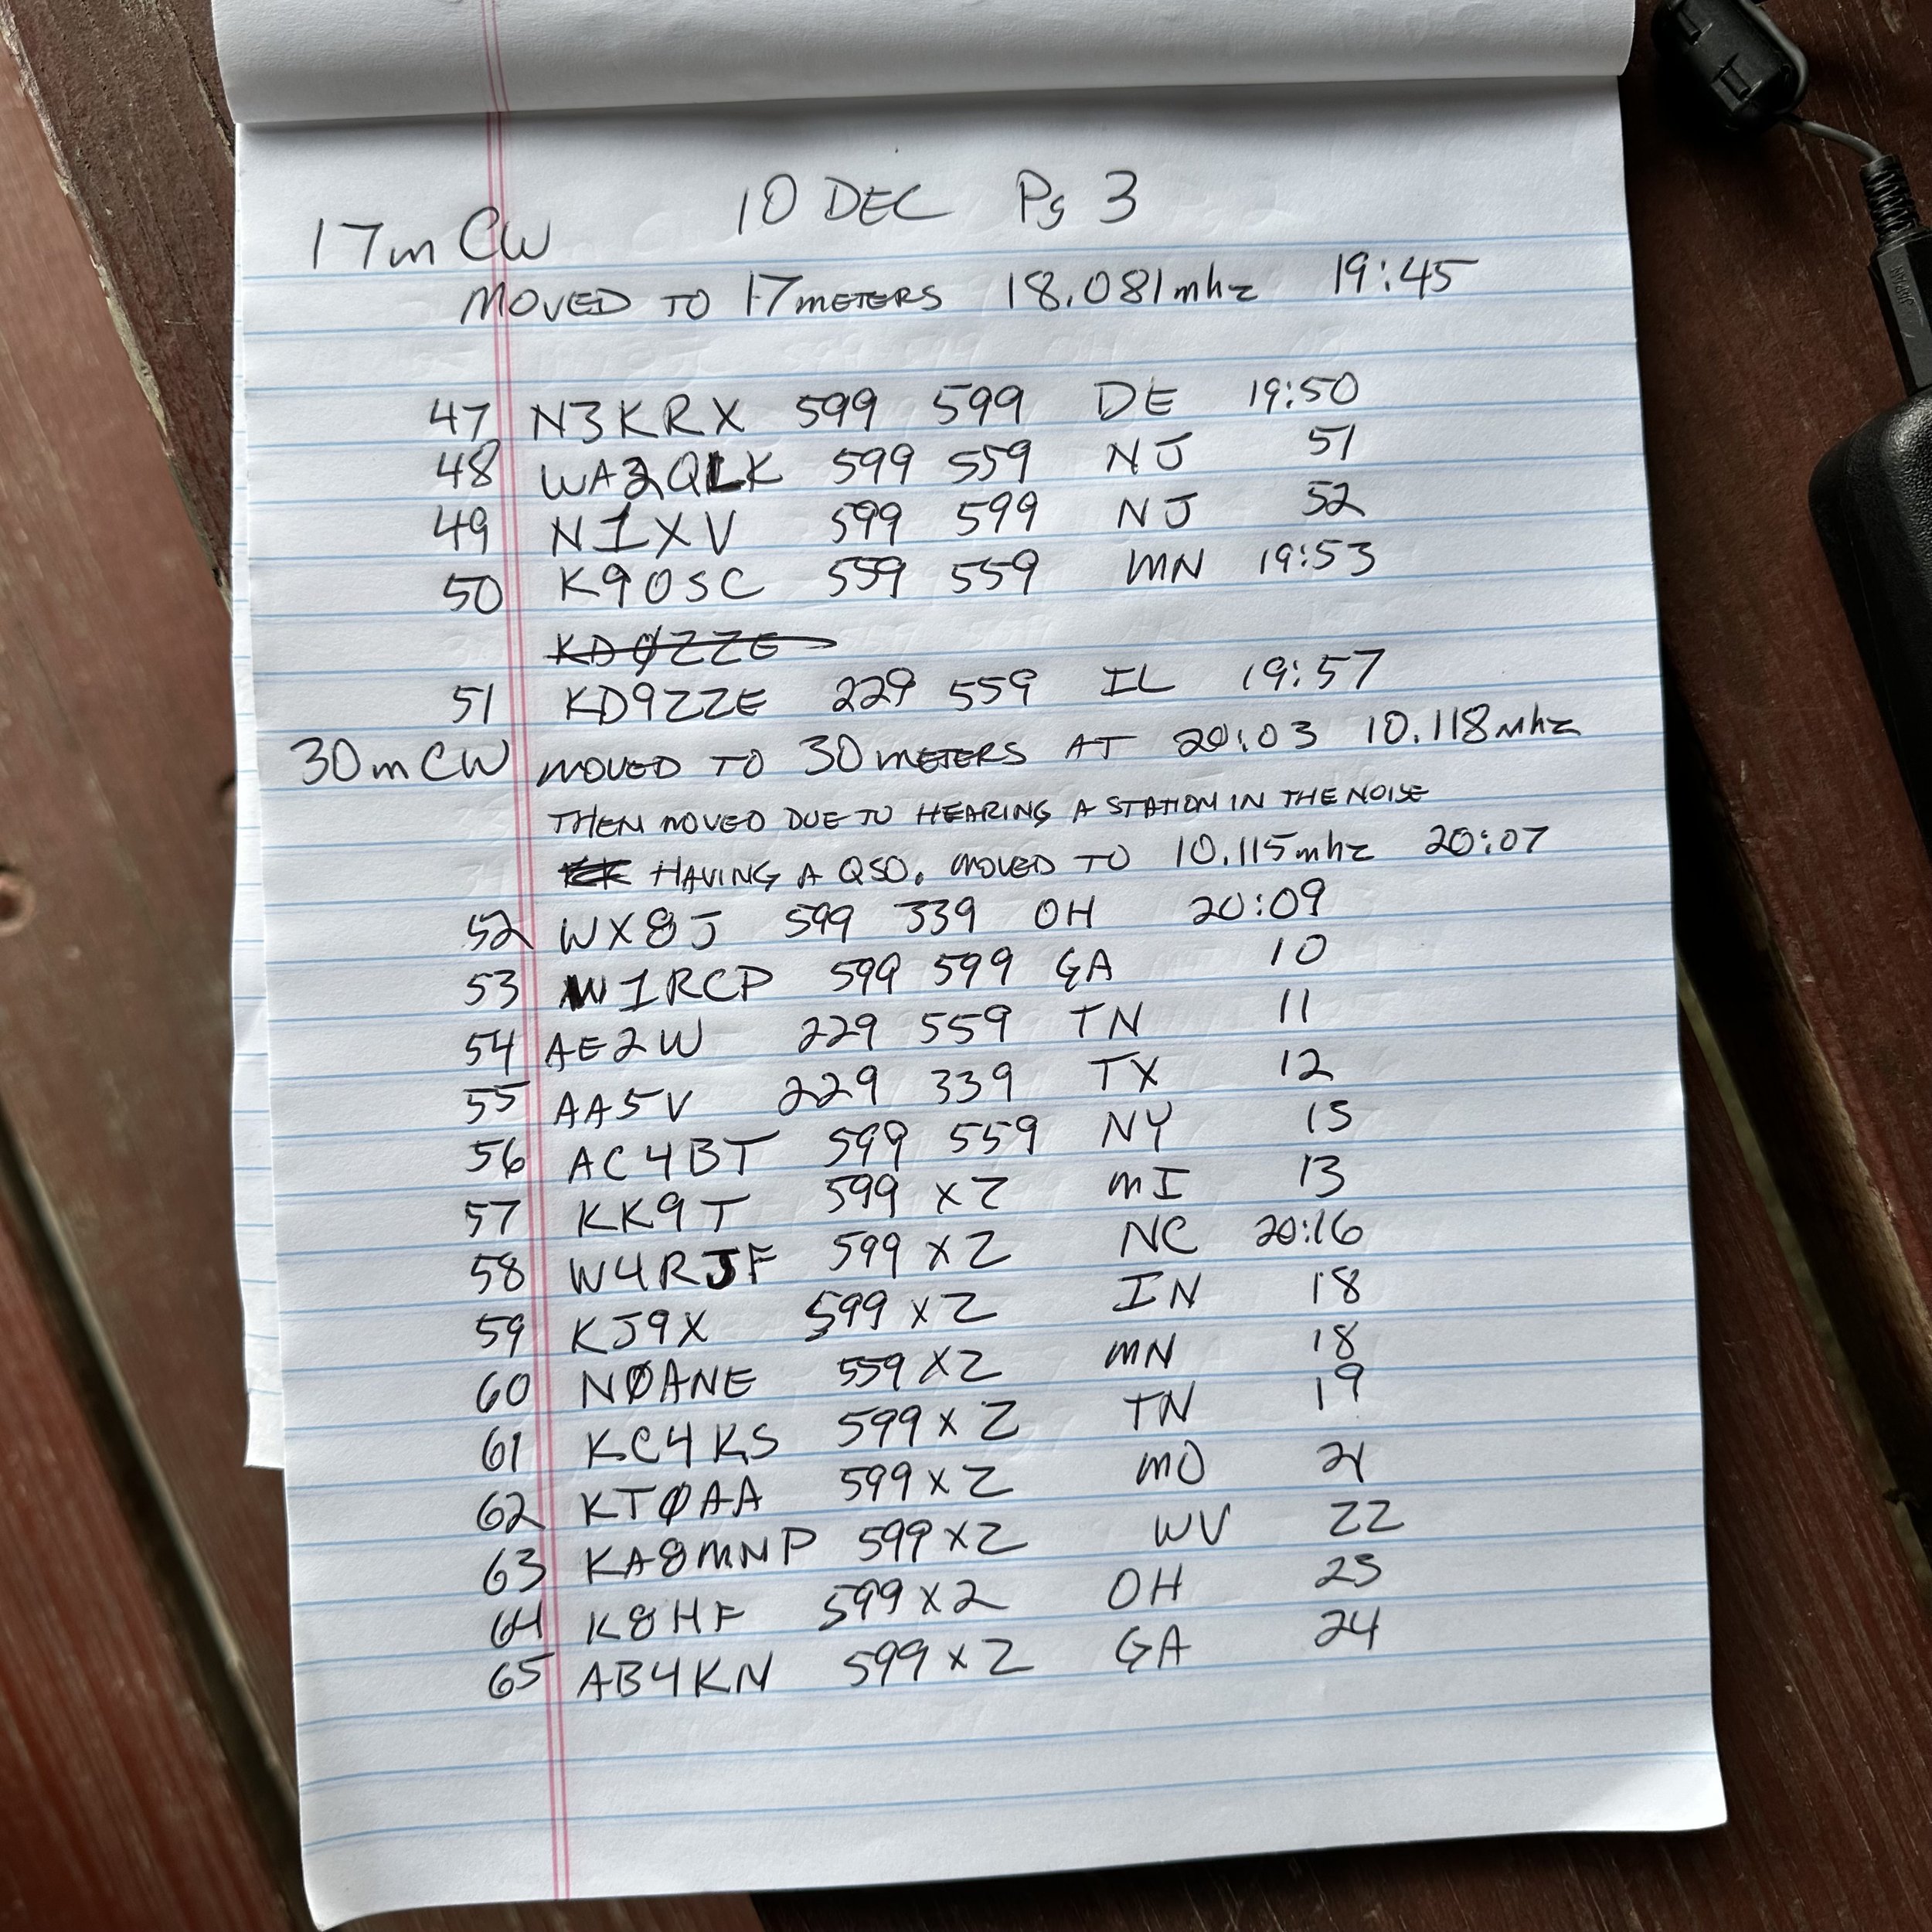 10 DEC Pg 3
17m CW
MOVED TO 17 METERS 18.081 mhz 19:45
47 N3KRX 599 599 DE 19:50
48 WA2QLK 599 559 NJ 51
49 N1XV 599 599 NJ 52
50 K9OSC 559 559 MN 19:53
KDØZZE
51 KD9ZZE 229 559 IL 19:57
30m CW MOVED TO 30 METERS AT 20:03 10.118 mhz
THEN MOVED DUE TO HEARING A STATION IN THE NOISE
HAVING A QSO. MOVED TO 10.115 mhz 20:07
52 WX8J 599 339 OH 20:09
53 W1RCP 599 599 GA 10
54 AE2W 229 559 TN 11
55 AA5V 229 339 TX 12
56 AC4BT 599 559 NY 15
57 KK9T 599 x2 MI 13
58 W4RJF 599 x2 NC 20:16
59 KJ9X 599 x2 IN 18
60 NØANE 559 x2 MN 18
61 KC4KS 599 x2 TN 19
62 KTØAA 599 x2 MO 21
63 KA8MNP 599 x2 WV 22
64 K8HF 599 x2 OH 23
65 AB4KN 599 x2 GA 24